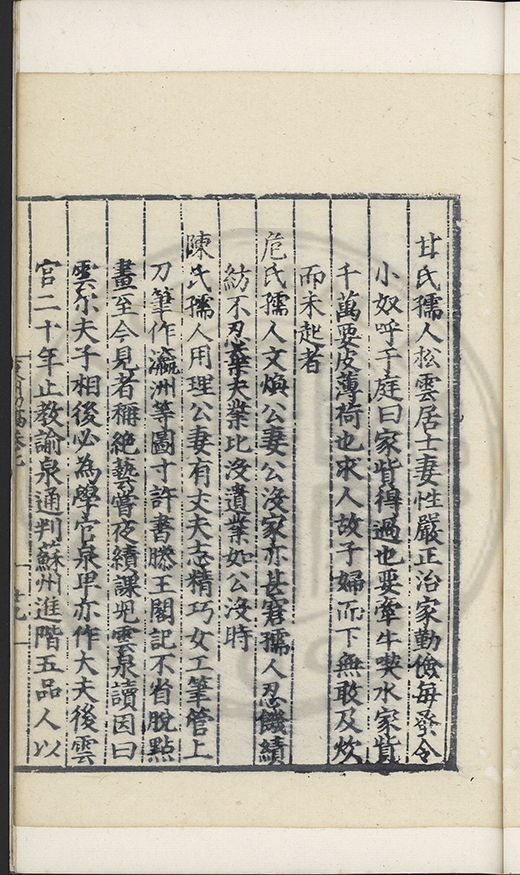 甘氏孺人松雲居士妻性嚴正治家勤儉每發令
小奴呼于庭曰家貲得過也要牽牛喫水家貲
千萬要皮薄荷也求人故子婦而下無敢及炊
而未起者
危氏孺人文煥公妻公沒家亦甚窘孺人忍饑績
紡不忍棄夫業比沒遺業如公沒時
陳氏孺人用理公妻有丈夫志精巧女工筆管上
刀筆作瀛洲等圖寸許書滕王閣記不省脫點
畫至今見者稱絕藝嘗夜績課兒雲泉讀因曰
雲尔夫子相後必為學官泉甲亦作大夫後雲
官二十年止教諭泉通判蘇州進階五品人以